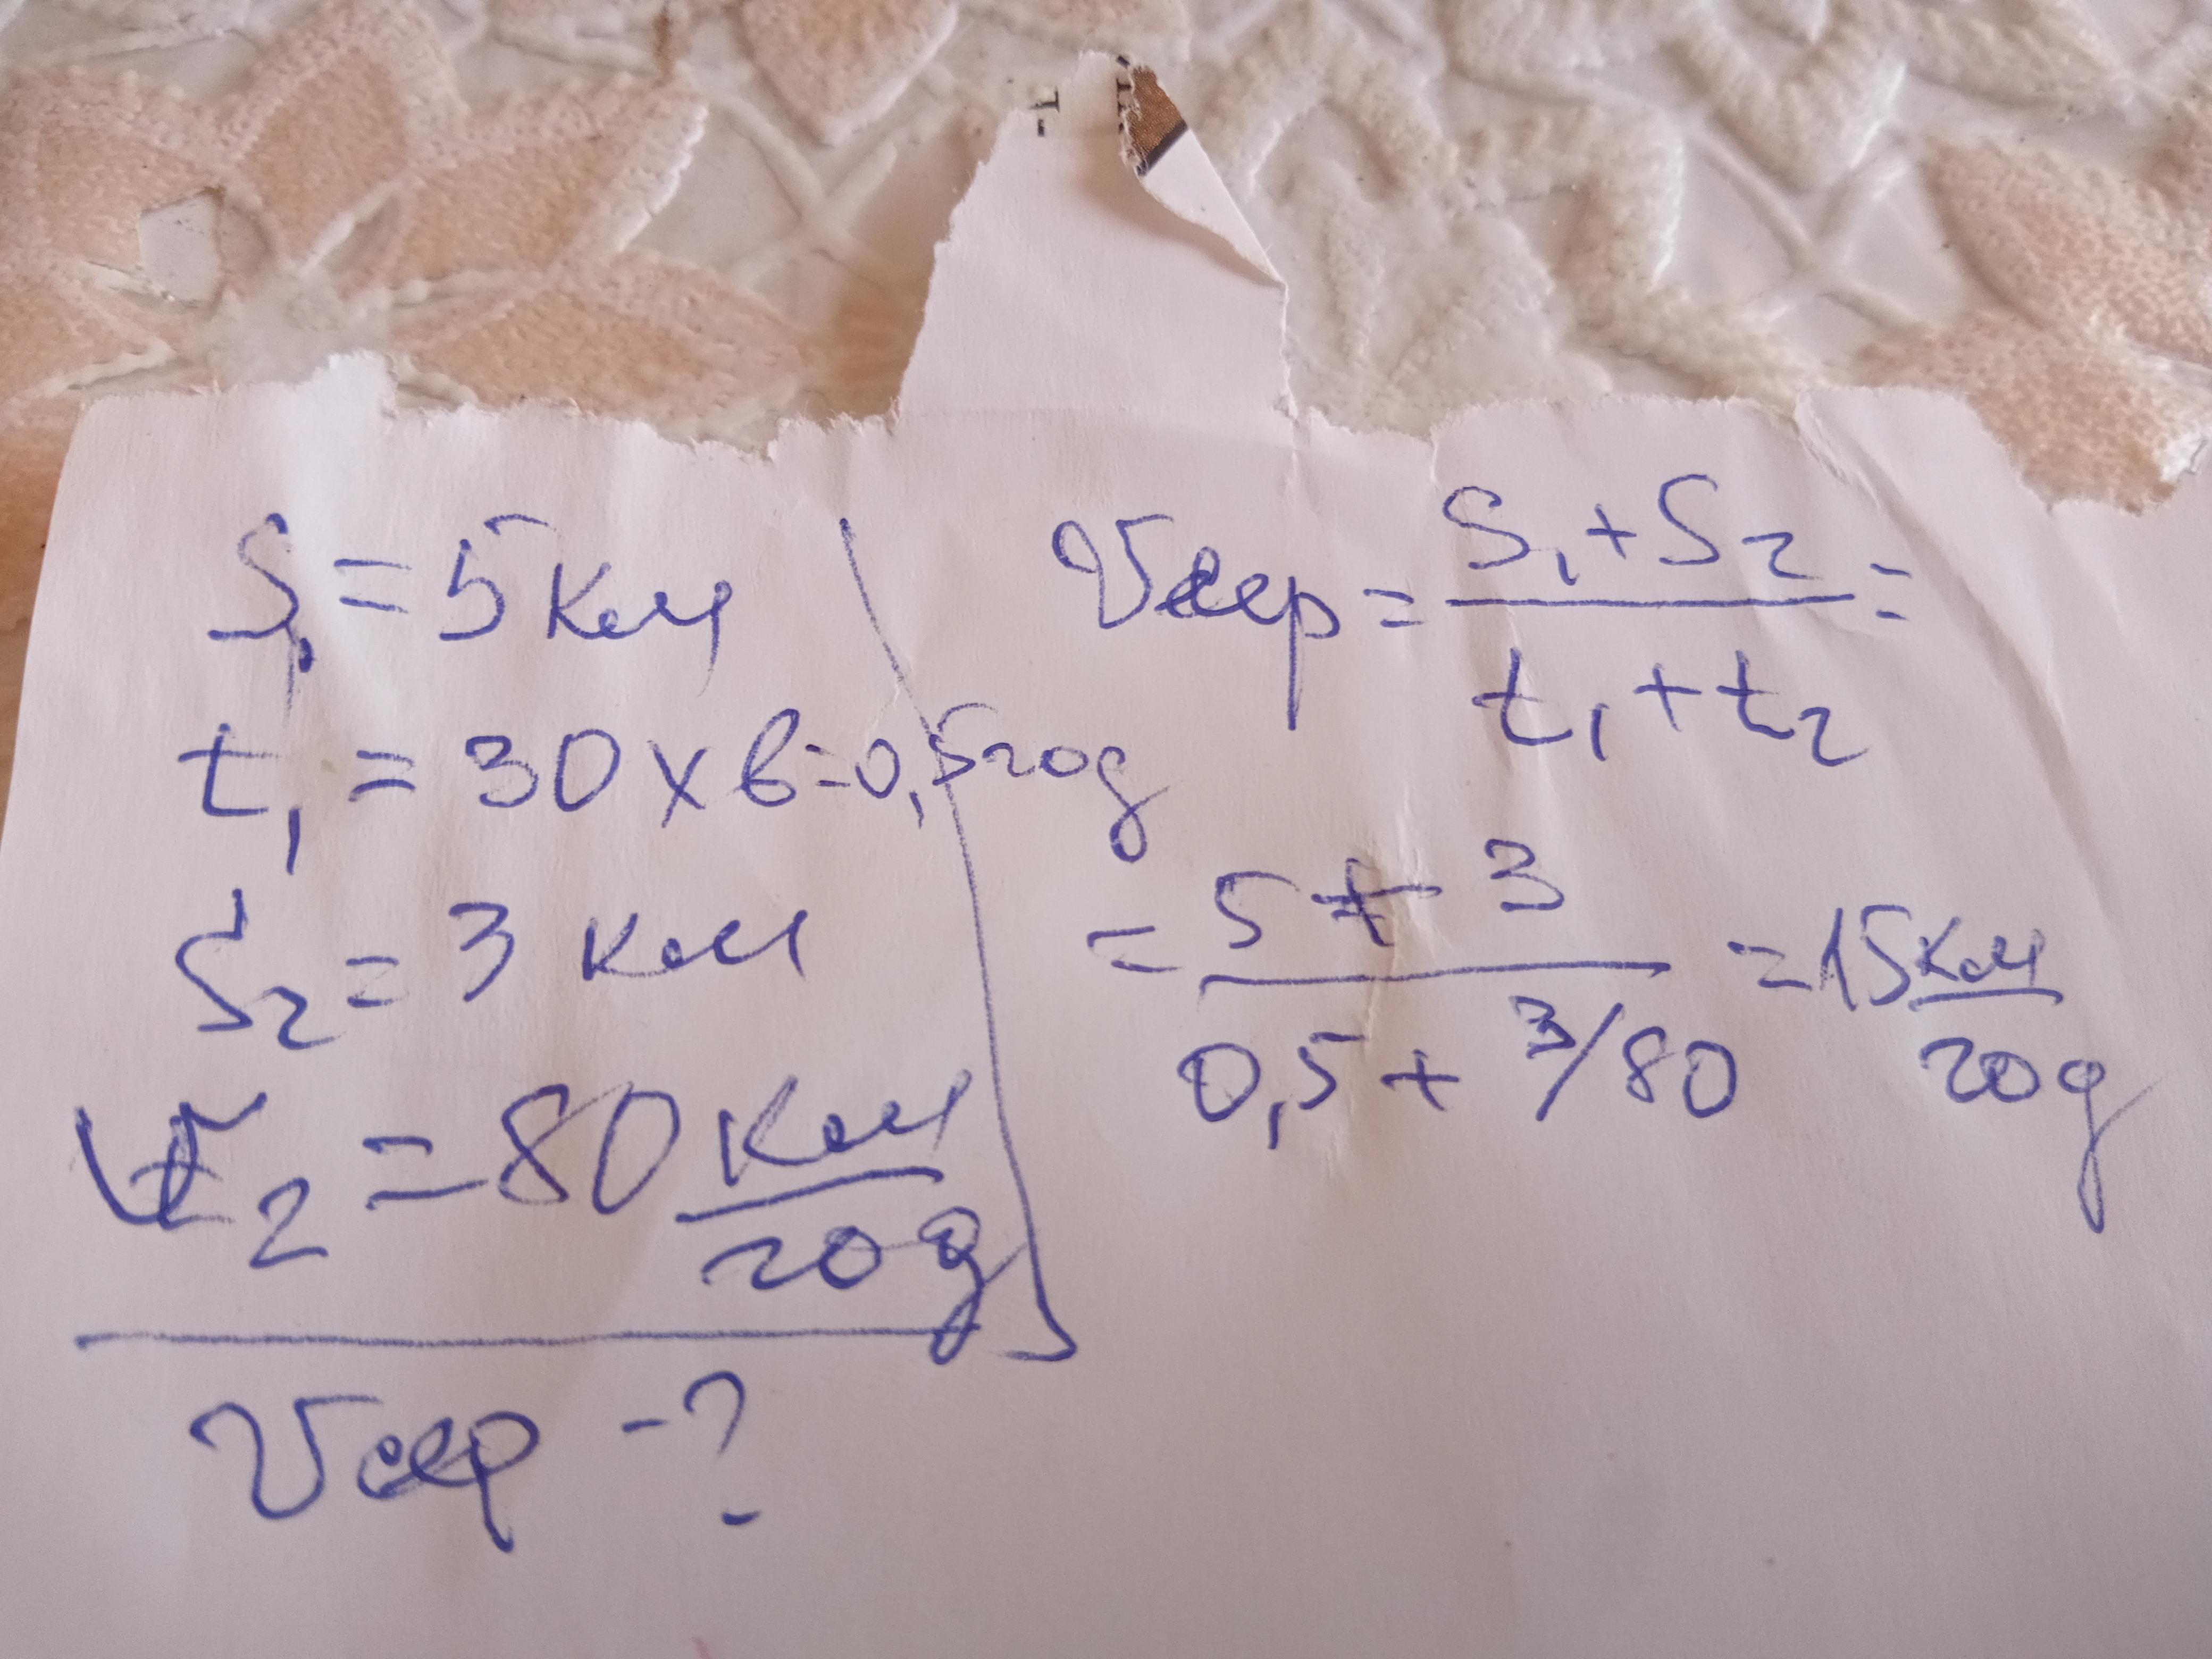 S₁ = 5 км
t₁ = 30 хв = 0,5 год
S₂ = 3 км
v₂ = 80 км/год
Vсер - ?
Vсер = S₁ + S₂ / t₁ + t₂ =
= 5 + 3 / 0,5 + 3/80 = 15 км/год